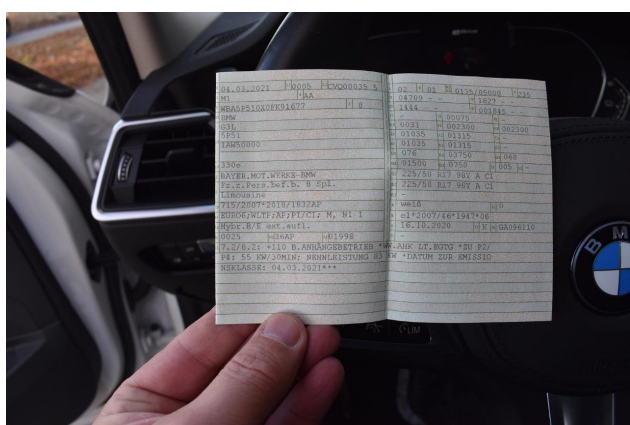 04.03.2021 0005 CVQ00035 5
M1 AA
WBA5P510X0FK91677 8
BMW
G3L
5P51
IAW50000
330e
BAYER.MOT.WERKE-BMW
Fz.z.Pers.bef.b. 8 Spl.
Limousine
715/2007*2018/1832AP
EURO6;WLTP;AP;PI/CI; M, N1 I
Hybr.B/E ext.aufl.
0025 36AP 01998
7.2/8.2: +110 B.ANHÄNGEBETRIEB *WW.AHK LT.EGTG *ZU P2/
P4: 55 KW/30MIN; NENNLEISTUNG 83 KW *DATUM ZUR EMISSIO
NSKLASSE: 04.03.2021***
02 01 0135/05000 235
04709 - - 1827 - -
1444 - 001845 - -
- 00075 -
0031 002300 002300
01035 01315 -
01035 01315 -
076 03750 068
01500 0750 005 -
225/50 R17 98Y A C1
225/50 R17 98Y A C1
-
weiß 0
e1*2007/46*1947*06
16.10.2020 K GA096110
-
LIM
BMW